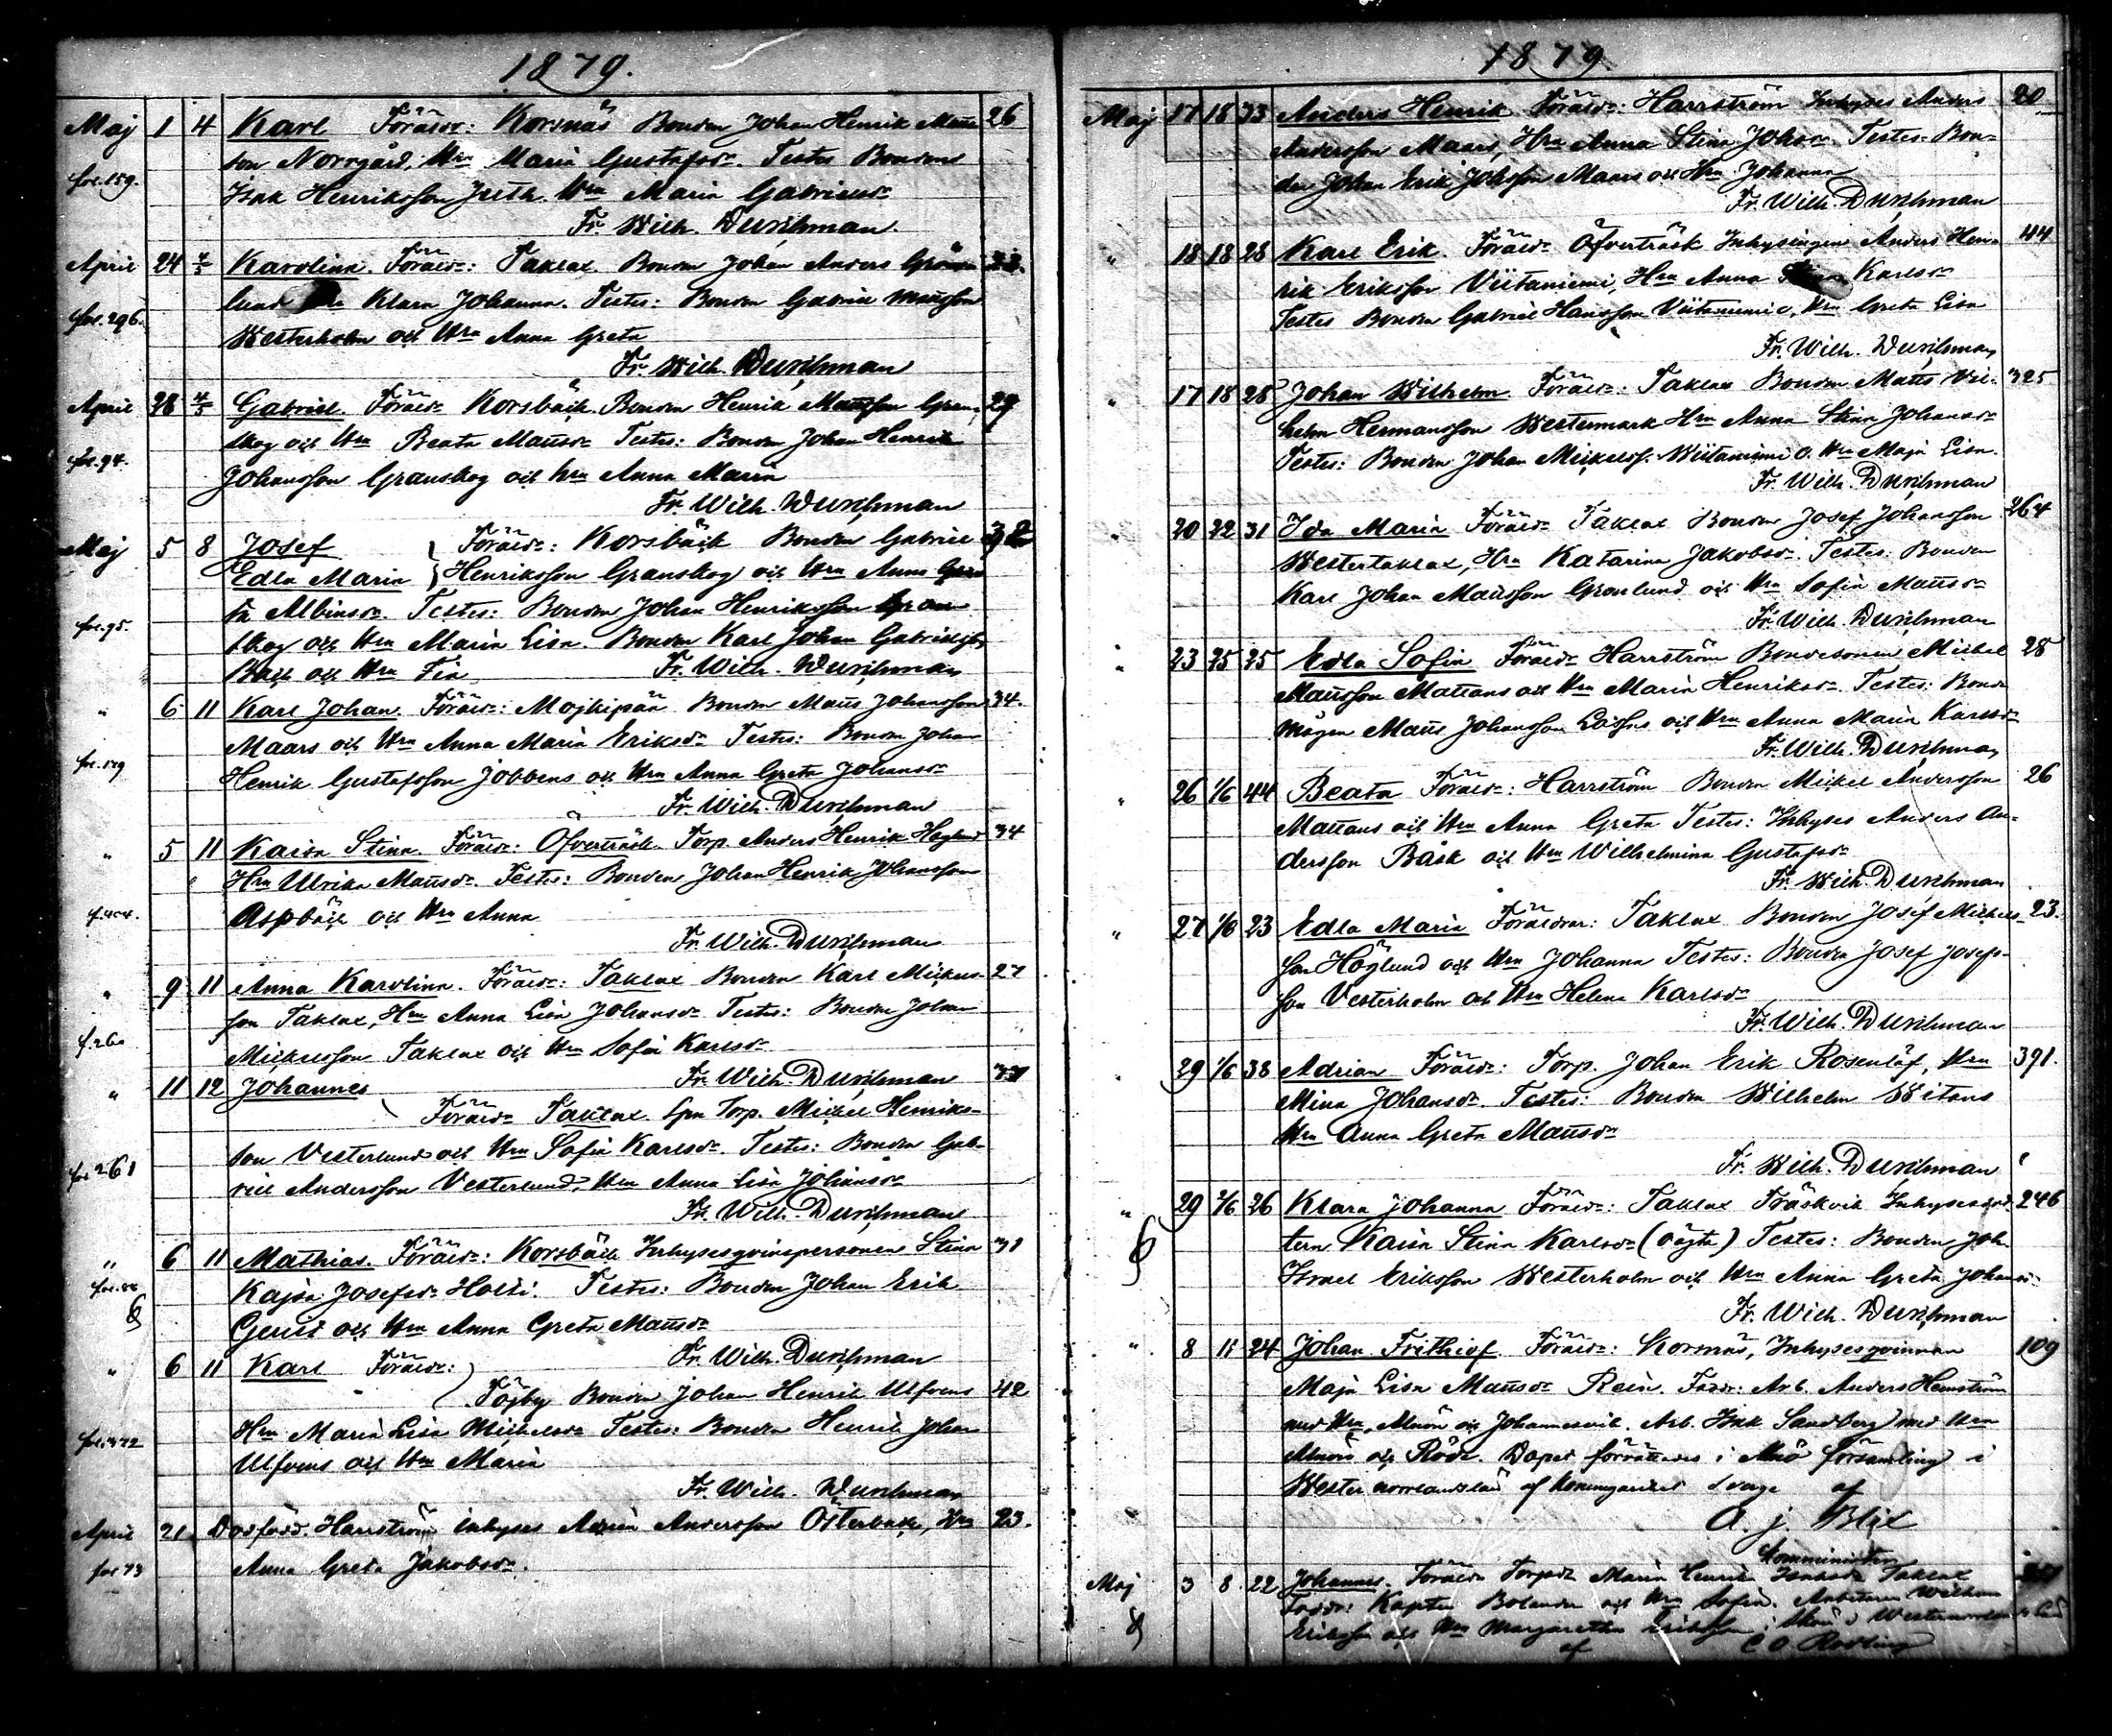 1879.
Maj 1 4 Karl Föräldr: Korsnäs Bonden Johan Henrik Matts 26
son Norrgård, Hru Maria Gustafsdr Testes Bonden
fol. 159. Isak Henriksson Juth Hru Maria Gabrielsdr
Fr. Wilh. Durchman.
April 24 4/5 Karolina. Föräldr: Taklax. Bonden Johan Anders Grön 33.
lund Hru Klara Johanna. Testes: Bonden Gabriel Mattsson
fol. 296. Westerholm och Hru Anna Greta
Fr. Wilh. Durchman
April 28 4/5 Gabriel. Föräldr Korsbäck. Bonden Henrik Mattsson Gran- 29
skog och Hru Beata Mattsdr Testes: Bonden Johan Henrik
fol. 94. Johansson Granskog och hru Anna Maria
Fr. Wilh. Durchman
Maj 5 8 Josef Föräldr: Korsbäck Bonden Gabriel 32
Edla Maria Henriksson Granskog och Hru Anna Gre
ta Albinsdr. Testes: Bonden Johan Henriksson Gran
fol. 95. skog och Hru Maria Lisa. Bonden Karl Johan Gabrielsson
Back och Hru Fia Fr. Wilh. Durchman
" 6 11 Karl Johan. Föräldr: Mojkipää Bonden Matts Johansson 34.
Maars och Hru Anna Maria Eriksdr Testes: Bonden Johan
fol. 179 Henrik Gustafsson Jobbens och Hru Anna Greta Johansdr
Fr. Wilh. Durchman
" 5 11 Kaisa Stina. Föräldr: Öfverträsk Torp. Anders Henrik Höglund 34
Hru Ulrika Mattsdr. Testes: Bonden Johan Henrik Johansson
f. 404. Aspbäck och Hru Anna
Fr. Wilh. Durchman
" 9 11 Anna Karolina. Föräldr: Taklax Bonden Karl Mickels- 27
son Taklax, Hru Anna Lisa Johansdr Testes: Bonden Johan
f. 260 Mickelsson Taklax och Hru Sofia Karlsdr
Fr. Wilh. Durchman
" 11 12 Johannes 31
Föräldr Taklax Torp. Mickel Henriks-
son Vesterlund och Hru Sofia Karlsdr. Testes: Bonden Gab-
fol 261 riel Andersson Vesterlund, Hru Anna Lisa Johansdr
Fr. Wilh. Durchman
" 6 11 Mathias. Föräldr: Korsbäck Inhysesqvinspersonen Stina 31
Kajsa Josefsdr Holti. Testes: Bonden Johan Erik
Gerist och Hru Anna Greta Mattsdr
Fr. Wilh. Durchman
" 6 11 Karl Föräldr:
Töjby Bonden Johan Henrik Ulfvens 42
Hru Maria Lisa Mickelsdr Testes: Bonden Henrik Johan
fol. 372 Ulfvens och Hru Maria
Fr. Wilh. Durchman
April 21 Dödfödd. Harrström Inhyses Andersson Österback, Hru 23.
fol 73 Anna Greta Jakobsdr.
1879
Maj 17 18 33 Anders Henrik Föräldr: Harrström Inhyses Anders 20
Andersson Maars, Hru Anna Stina Johsdr. Testes: Bon-
den Johan Erik Johsson Maars och Hru Johanna
Fr. Wilh. Durchman
" 18 18 28 Karl Erik. Föräldr Öfverträsk Inhysingen Anders Hen- 44
rik Eriksson Viitaniemi, Hru Anna Karlsdr
Testes Bonden Gabriel Hansson Viitaniemi o. Hru Greta Lisa
Fr. Wilh. Durchman
" 17 18 28 Johan Wilhelm. Föräldr: Taklax Bonden Matts Vil- 325
helm Hermansson Westermark Hru Anna Stina Johansdr
Testes: Bonden Johan Mickelss. Wiitaniemi o. Hru Maja Lisa.
Fr. Wilh. Durchman
" 20 22 31 Ida Maria Föräldr Taklax Bonden Josef Johansson 264
Westertaklax, Hru Katarina Jakobsdr. Testes: Bonden
Karl Johan Mattsson Grönlund och Hru Sofia Mattsdr
Fr. Wilh. Durchman
" 23 25 25 Edla Sofia Föräldr Harrström Bondesonen Mickel 28
Mattsson Mattans och Hru Maria Henriksdr. Testes: Bonde
mågen Matts Johansson Lassus och Hru Anna Maria Karlsdr
Fr. Wilh. Durchman
" 26 1/6 44 Beata Föräldr: Harrström Bonden Mickel Andersson 26
Mattans och Hru Anna Greta Testes: Inhyses Anders An-
dersson Båsk och Hru Wilhelmina Gustafsdr
Fr. Wilh. Durchman
" 27 1/6 23 Edla Maria Föräldrar: Taklax Bonden Josef Mickels- 23.
son Höglund och Hru Johanna Testes: Bonden Josef Josefs-
son Vesterholm och Hru Helena Karlsdr
Fr. Wilh. Durchman
" 29 1/6 38 Adrian Föräldr: Torp. Johan Erik Rosenlöf, Hru 391.
Mina Johansdr. Testes: Bonden Wilhelm Witans
Hru Anna Greta Mattsdr
Fr. Wilh. Durchman
" 29 2/6 26 Klara Johanna Föräldr: Taklax Träskvik 246
Kaisa Stina Karlsdr (oägta) Testes: Bonden Joh.
Israel Eriksson Westerholm och Hru Anna Greta Johansdr
Fr. Wilh. Durchman
" 8 11 24 Johan Frithiof. Föräldr: Korsnäs, Inhysesqvinnan 109
Maja Lisa Mattsdr Rein. Faddr: Arb. Anders Hemström
med Hru Johannesvik. Arb. Isak Sandberg med Hru
Röde. Dopet förrättades i Alnö församling i
Westernorrlands län af Konungariket Sverge af
A. J. Blix
Komminister
Maj 3 8 22 Johannes. Föräldr Maria Henrika Taklax
Faddr: Kapten Bolander och Hru Sofia. Arbetaren Wilhelm
Eriksson och Hru Margaretha Eriksson i
af C O Rodling